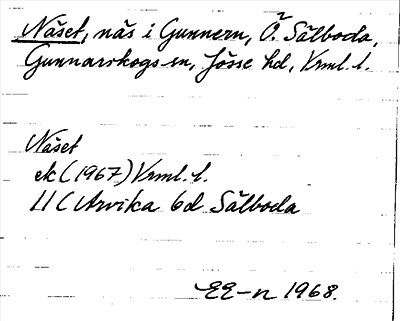 Näset, näs i Gunnern, Ö. Sälboda,
Gunnarskogs sn, Jösse hd, Vrml. l.
Näset
ek (1967) Vrml. l.
11 C Arvika 6d Sälboda
EE-n 1968.